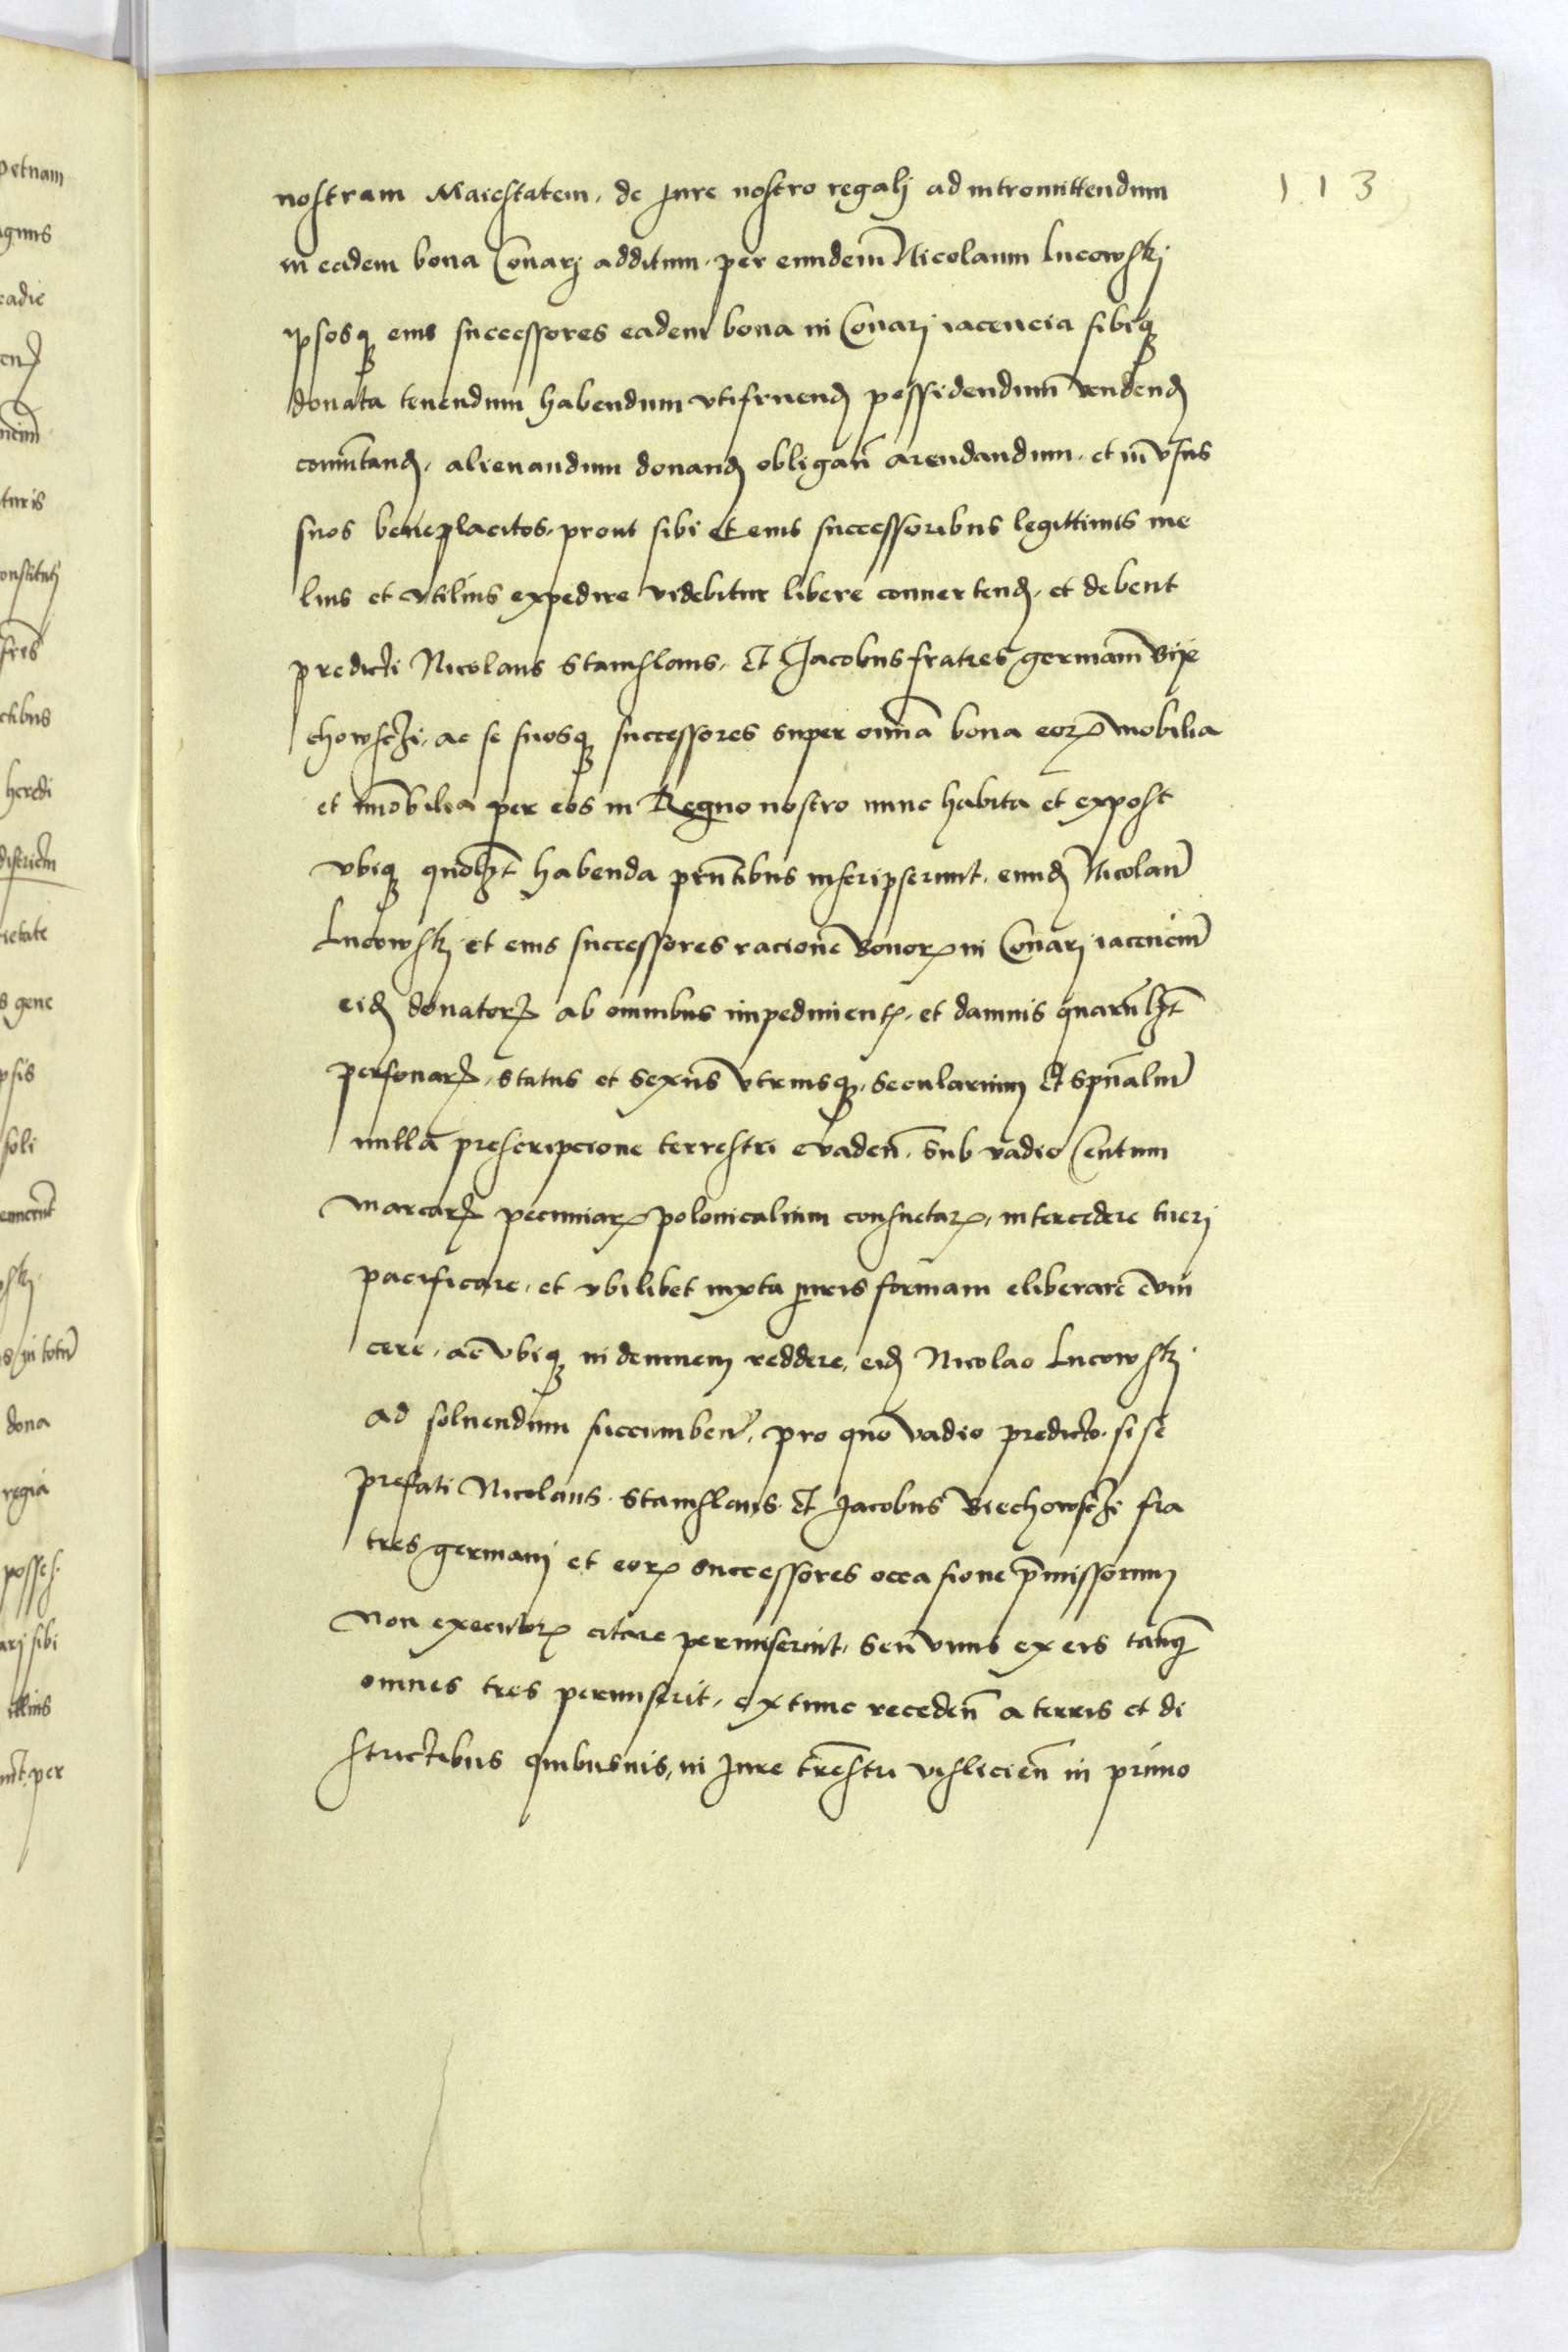 113
nostram Maiestatem, de Jure nostro regalj ad intromittendum
in eadem bona Conarj additum, per eundem̄ Nicolaum Lucowskj
ipsosq eius successores eadem bona in Conarj iacencia sibiq
donata tenendum habendum vtifruend possidendum vendend
comutand, alienandum donand obligan̄ arendandum, et in vsus
suos beneplacitos, prout sibi et eius successoribus legittimis me
lius et vtilius expedire videbitur libere conuertend, et debent
predicti Nicolaus Stanislaus, Et Jacobus fratres germanī Bije
chowsczi, ac se suosq successores super om̄ia bona eorꝝ mobilia
et imōbilia per eos in Regno nostro nunc habita et expost
vbiq quolꝫt habenda pn̄tibus inscripserunt, eund Nicolaū
Lucowskj et eius successores racione Bonorꝝ in Conarj iacenciū
eid donatorꝝ ab omnibus impedimentꝭ, et damnis quarūlꝫt
personarꝝ, status et sexus vtriusq, secularium Et spūaliū
nulla prescripcione terrestri evaden̄, sub vadio Centum
Marcarꝝ pecuniarꝝ polonicalium consuetarꝝ, intercedere tuerj
pacificare, et vbilibet iuxta iuris formam eliberare evin
cere, ac vbiq indemnem reddere, eid Nicolao Lucowskj
ad soluendum succumben̄, pro quo vadio predicto, si se
prefati Nicolaus Stanislaus Et Jacobus Biechowsczi fra
tres germanj et eorꝝ successores occasione p̄missorum
Non executorꝝ citare permiserint, Seu vnus ex eis tanq
omnes tres permiserit, extunc receden̄ a terris et di
strictibus quibusuis, in Jure tr̄estri vislicien̄ in primo